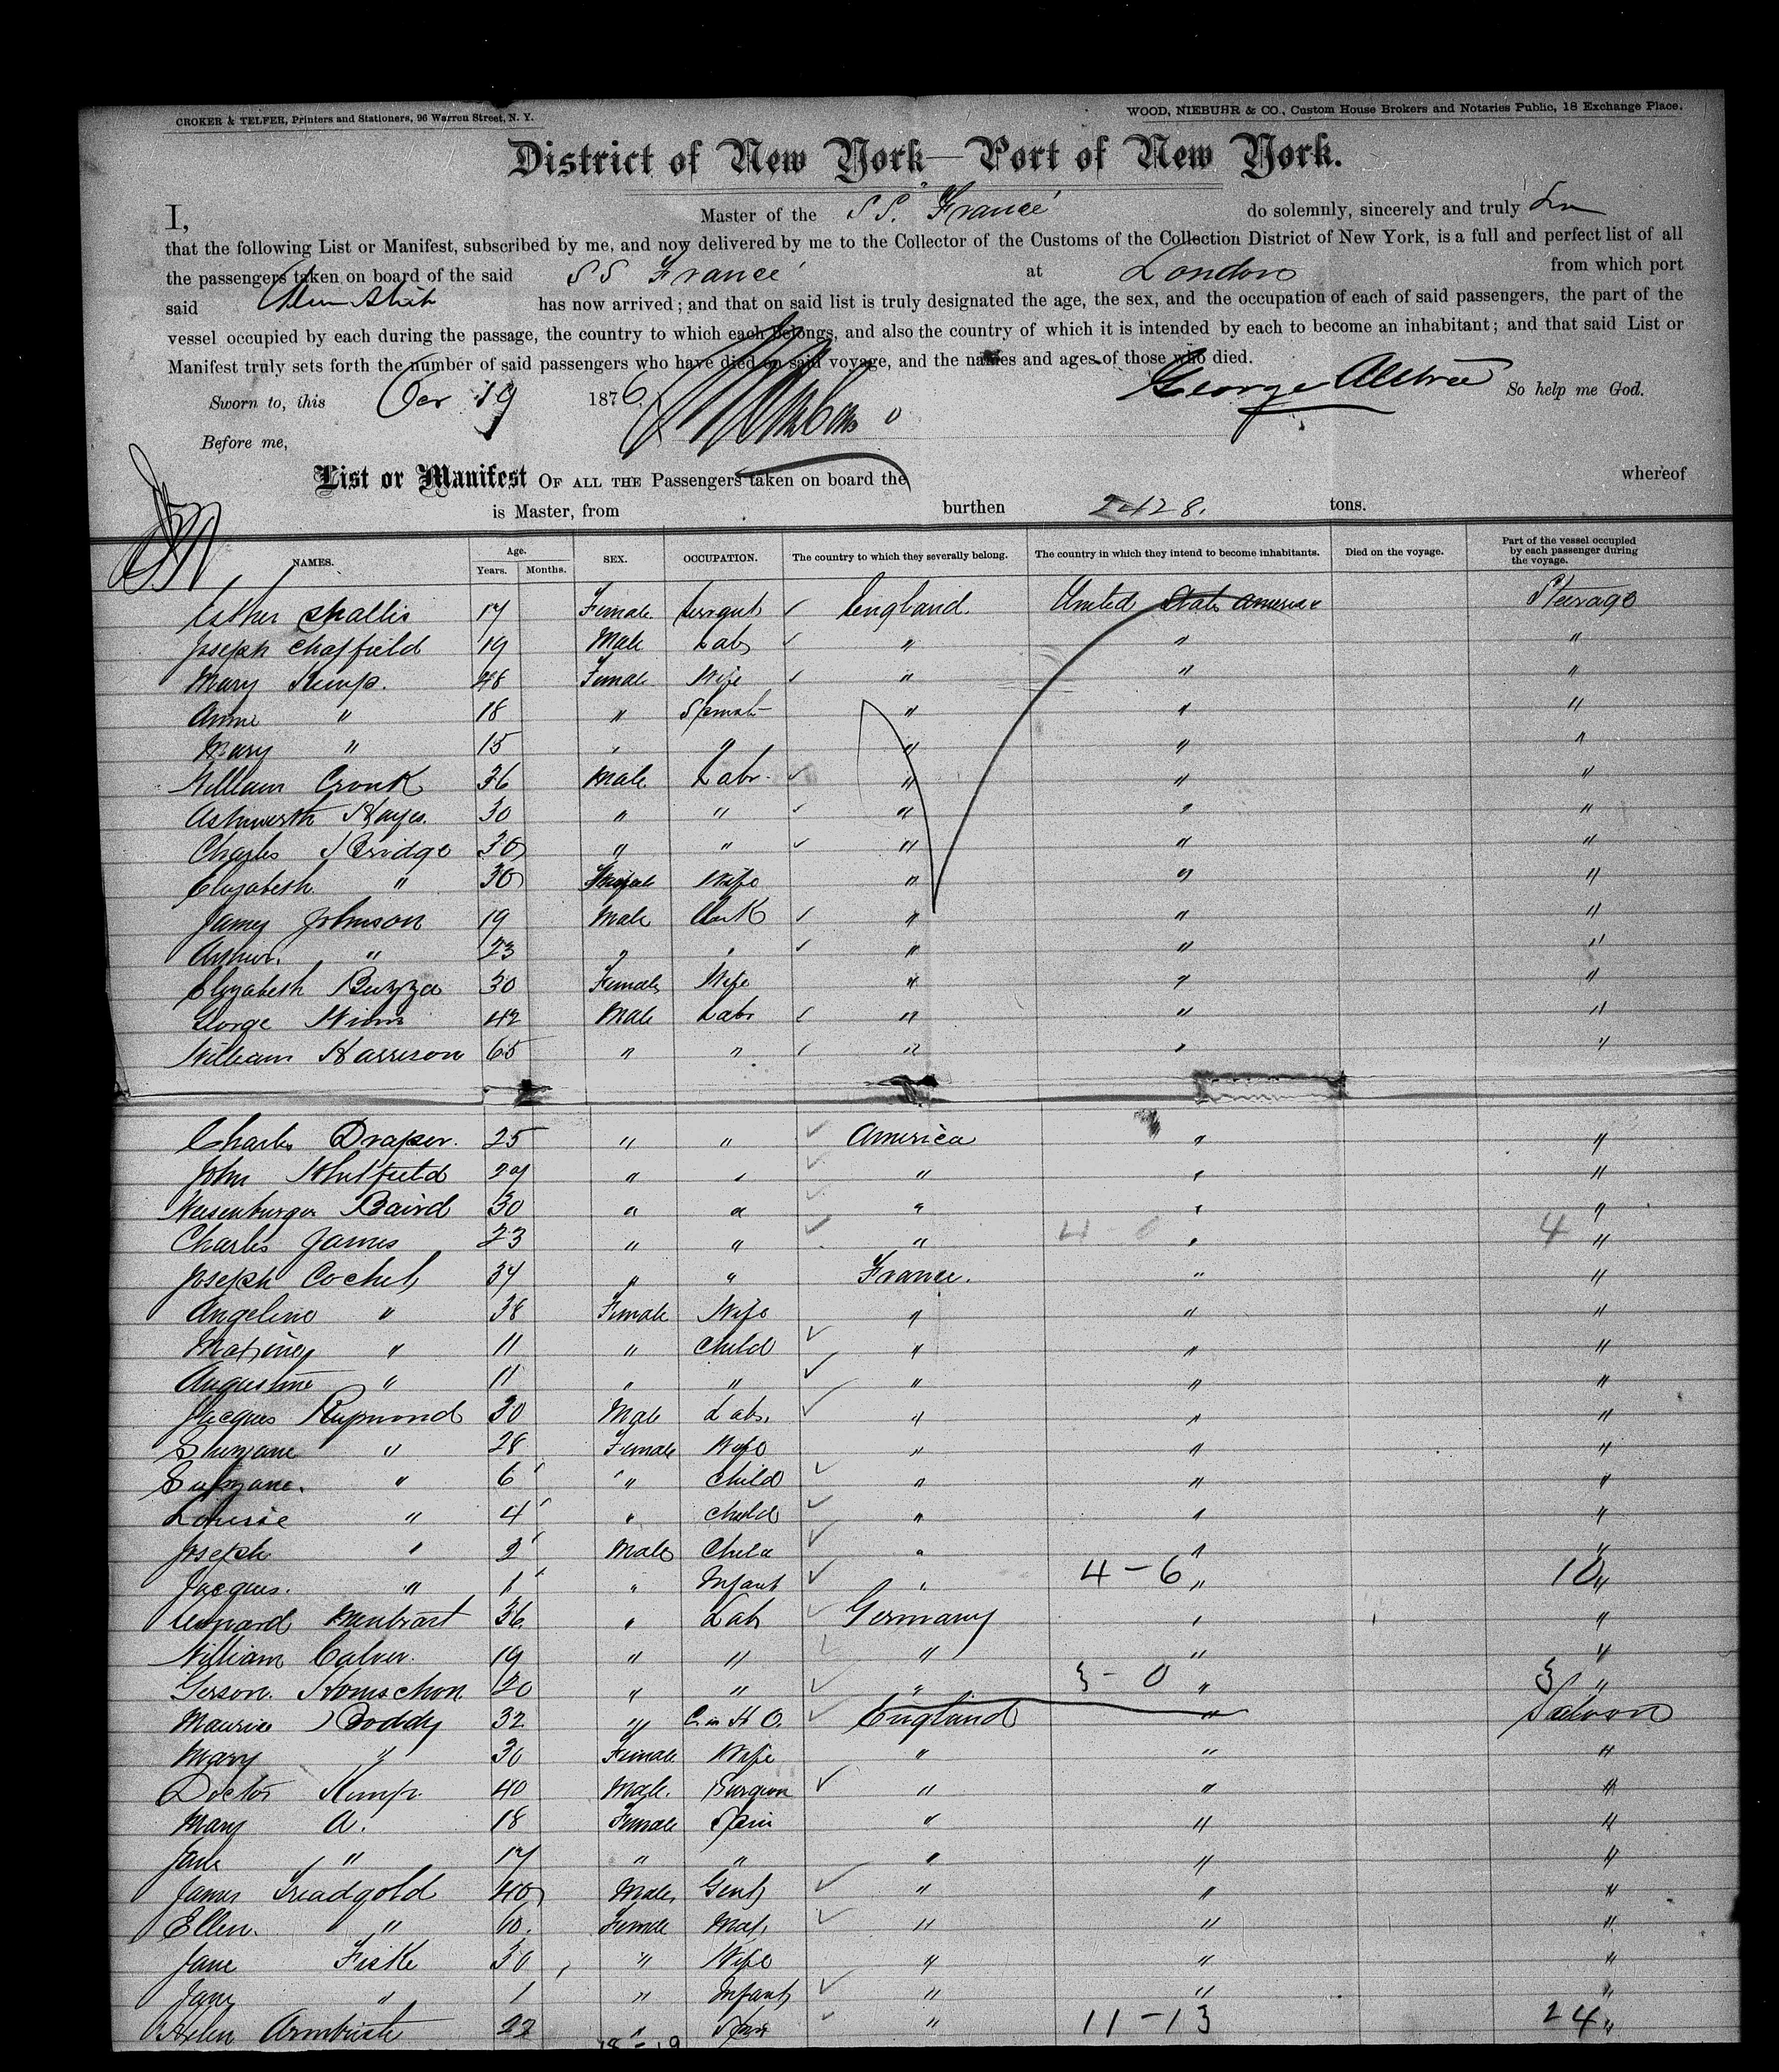 CROKER & TELFER, Printers and Stationers, 96 Warren Street, N. Y.
WOOD, NIEBUHR & CO., Custom House Brokers and Notaries Public, 18 Exchange Place.
District of New York—Port of New York.
I, Master of the S S. France do solemnly, sincerely and truly
that the following List or Manifest, subscribed by me, and now delivered by me to the Collector of the Customs of the Collection District of New York, is a full and perfect list of all
the passengers taken on board of the said S S France at London from which port
said has now arrived; and that on said list is truly designated the age, the sex, and the occupation of each of said passengers, the part of the
vessel occupied by each during the passage, the country to which each belongs, and also the country of which it is intended by each to become an inhabitant; and that said List or
Manifest truly sets forth the number of said passengers who have died on said voyage, and the names and ages of those who died.
Sworn to, this 19 1876 George So help me God.
Before me,
List or Manifest OF ALL THE Passengers taken on board the whereof
is Master, from burthen 2428. tons.
NAMES. Age. Years. Months. SEX. OCCUPATION. The country to which they severally belong. The country in which they intend to become inhabitants. Died on the voyage. Part of the vessel occupied by each passenger during the voyage.
Esther Shallis 17 Female Servant England. United States America Steerage
Joseph Chaffield 19 Male Labr " " "
Mary Kemp. 48 Female Wife " " "
Anne " 18 " " " "
Mary " 15 " " " " "
William Cronk 36 Male Labr " " "
Ashworth Hayes. 30 " " " " "
Charles 30 " " " " "
Elizabeth " 30 Female Wife " " "
James Johnson 19 Male Clerk " " "
Arthur. " 23 " " " " "
Elizabeth Buzza 30 Female Wife " " "
George 42 Male Labr " " "
William Harrison 65 " " " " "
Charles Draper. 25 " " America " "
John Whitfield 29 " " " " "
Weisenburger Baird 30 " " " " "
Charles James 23 " " " 4 - 0 " 4 "
Joseph Cochet 34 " " France. " "
Angeline " 38 Female Wife " " "
" 11 " Child " " "
Augustine " 11 " " " " "
Jacques Raymond 30 Male Labr. " " "
" 28 Female Wife " " "
" 6 " Child " " "
Louise " 4 " Child " " "
Joseph " 2 Male Child " " "
Jacques. " 1 " Infant " 4 - 6 " 10 "
Leonard 36 " Labr Germany " "
William Calver. 19 " " " " "
Gerson. 20 " " " 3 - 0 " 3 "
Maurice Boddy 32 " England " Saloon
Mary " 30 Female Wife " " "
Doctor Kemp. 40 Male. Surgeon " " "
Mary A. 18 Female Spin " " "
Jane " 17 " " " " "
James Treadgold 40 Male Gent " " "
Ellen. " 60. Female " " "
Jane Fiske 30 " Wife " " "
Jane " 1 " Infant " " "
Helen Armbriste 22 " Spin " 11 - 13 24 "
18 - 19